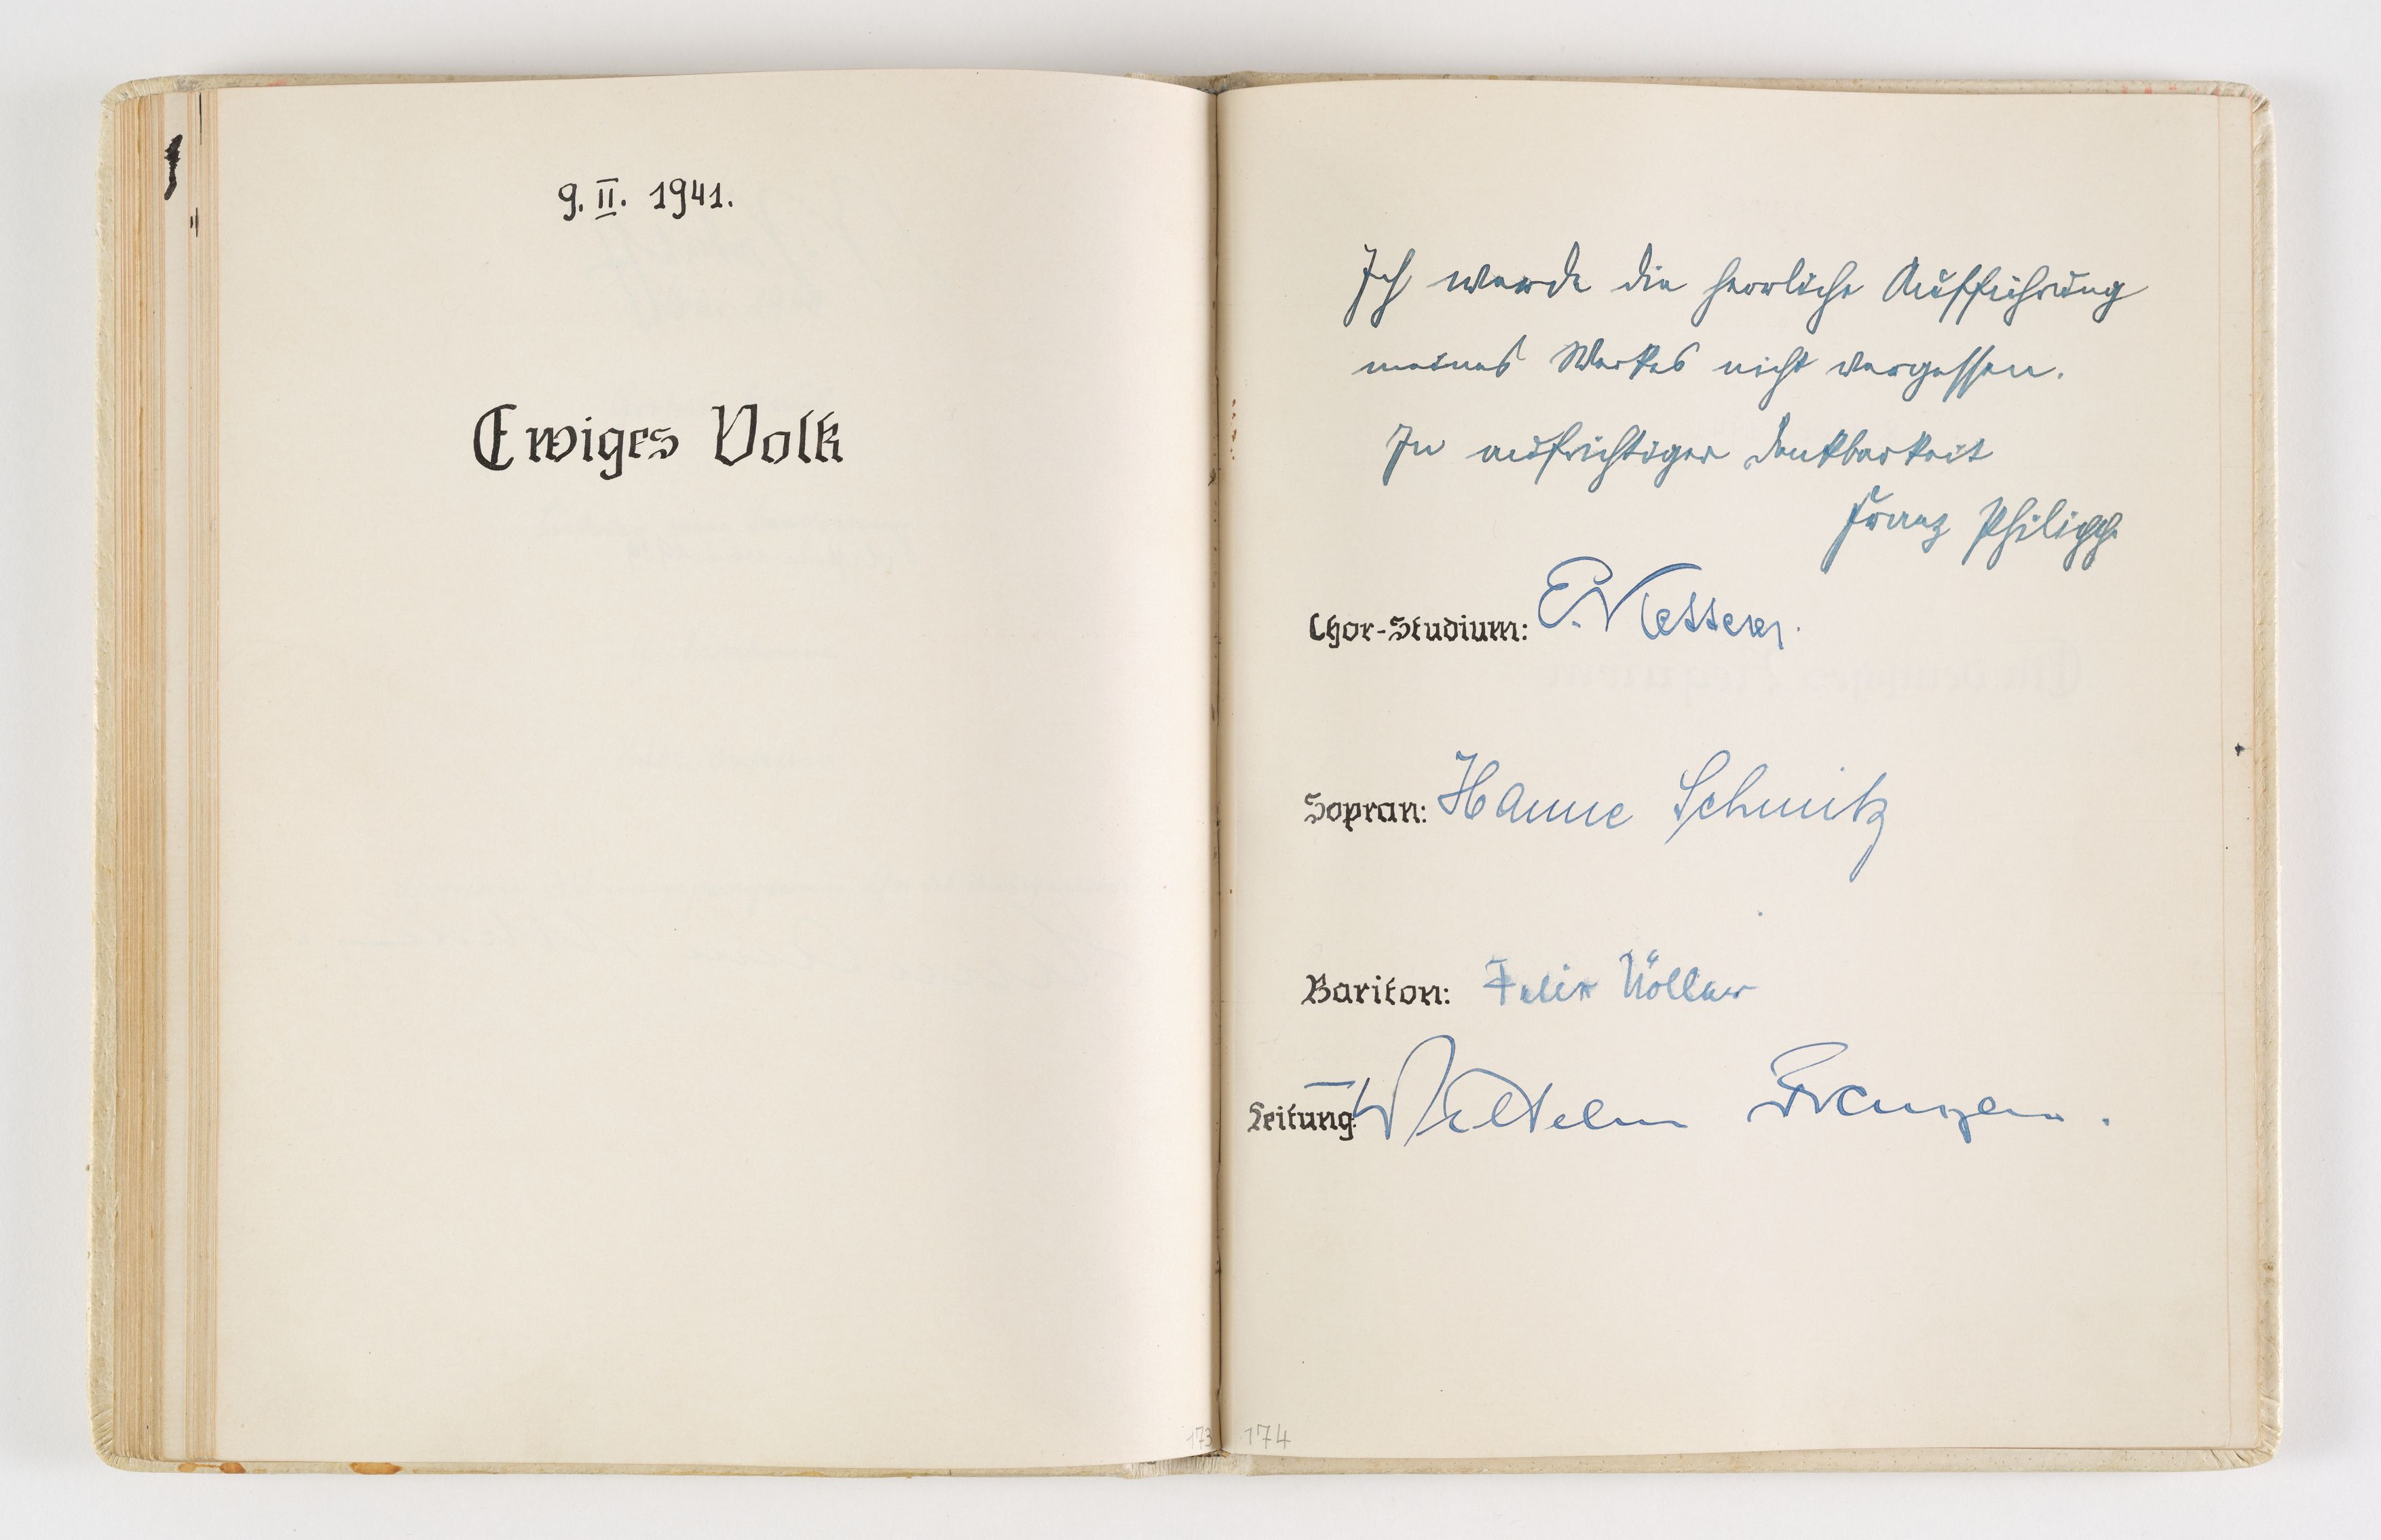 9. II. 1941.
Ewiges Volk
Ich werde die herrliche Aufführung
meines Werkes nicht vergessen.
In aufrichtiger Dankbarkeit
Franz Philipp.
Chor-Studium: E.
Sopran: Hanne Schmitz
Bariton: Felix
Leitung: Wilhelm
173
174